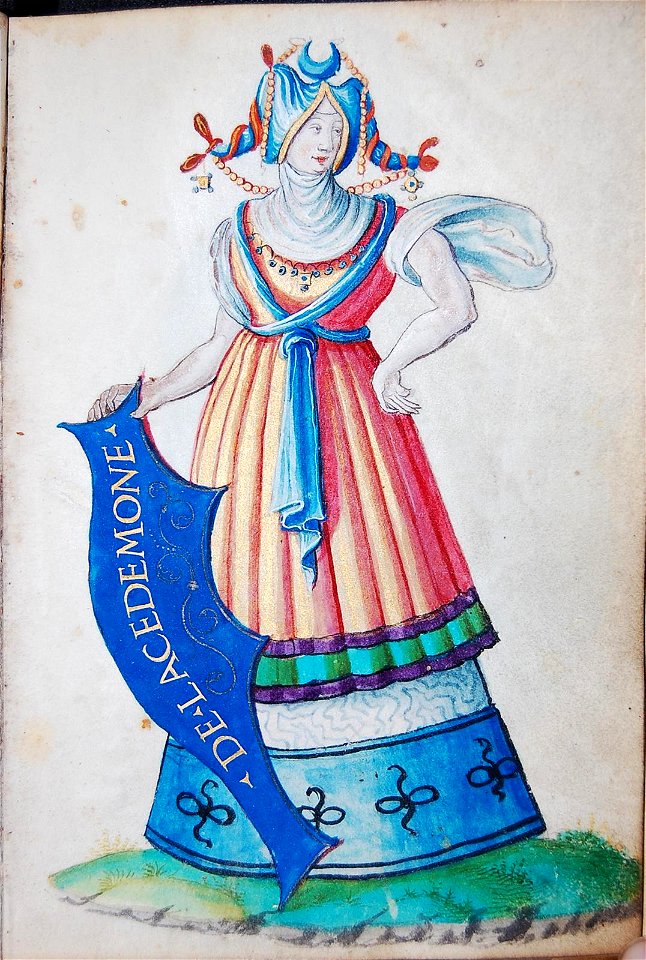 DE·LACEDEMONE